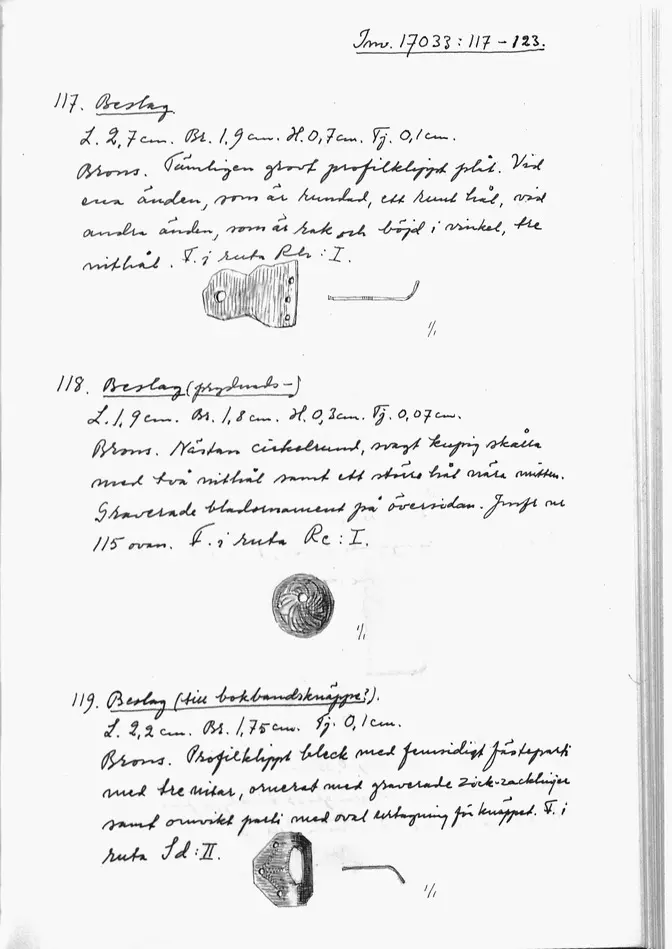 Inv. 17033:117-123.
117. Beslag
L. 2,7cm. Br. 1,9cm. H. 0,7cm. Tj. 0,1cm.
Brons. Tämligen grovt profilklippt plåt. Vid
ena änden, som är rundad, ett runt hål, vid
andra änden, som är rak och böjd i vinkel, tre
nithål. F. i ruta Rb:I.
1/1
118. Beslag (prydnads-)
L. 1,9cm. Br. 1,8cm. H. 0,3cm. Tj. 0,07cm.
Brons. Nästan cirkelrund, svagt kupig skålla
med två nithål samt ett större hål nära mitten.
Graverade bladornament på översidan. Jmfr nr
115 ovan. F. i ruta Rc:I.
1/1
119. Beslag (till bokbandsknäppe?).
L. 2,2cm. Br. 1,75cm. Tj. 0,1cm.
Brons. Profilklippt bleck med femsidigt fästeparti
med tre nitar, ornerat med graverade zick-zacklinjer
samt omvikt parti med oval urtagning för knäppet. F. i
ruta Sd:II.
1/1